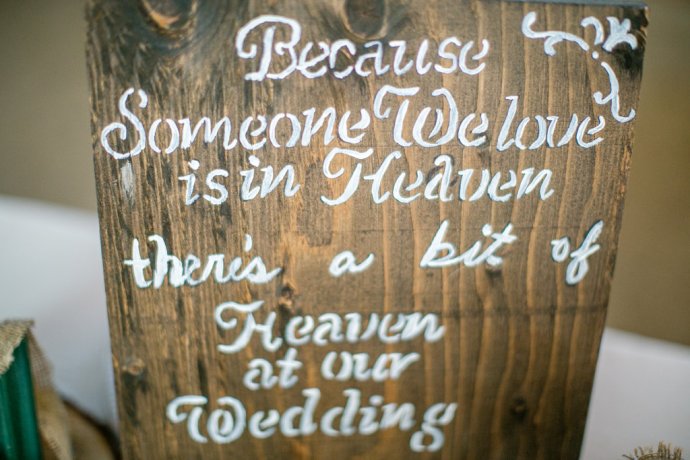 Because
Someone We love
is in Heaven
there's a bit of
Heaven
at our
Wedding